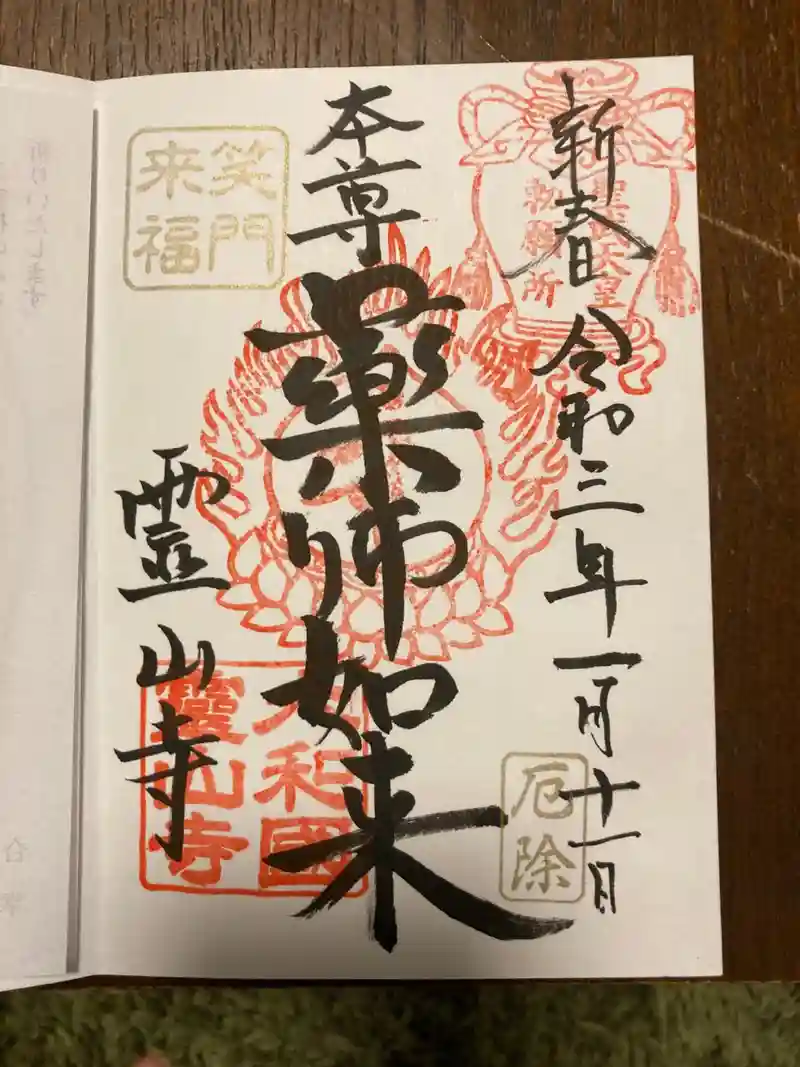 新春 令和三年一月十一日
聖武天皇
勅願所
厄除
本尊
薬師如来
笑門
来福
霊山寺
大和國
霊山寺